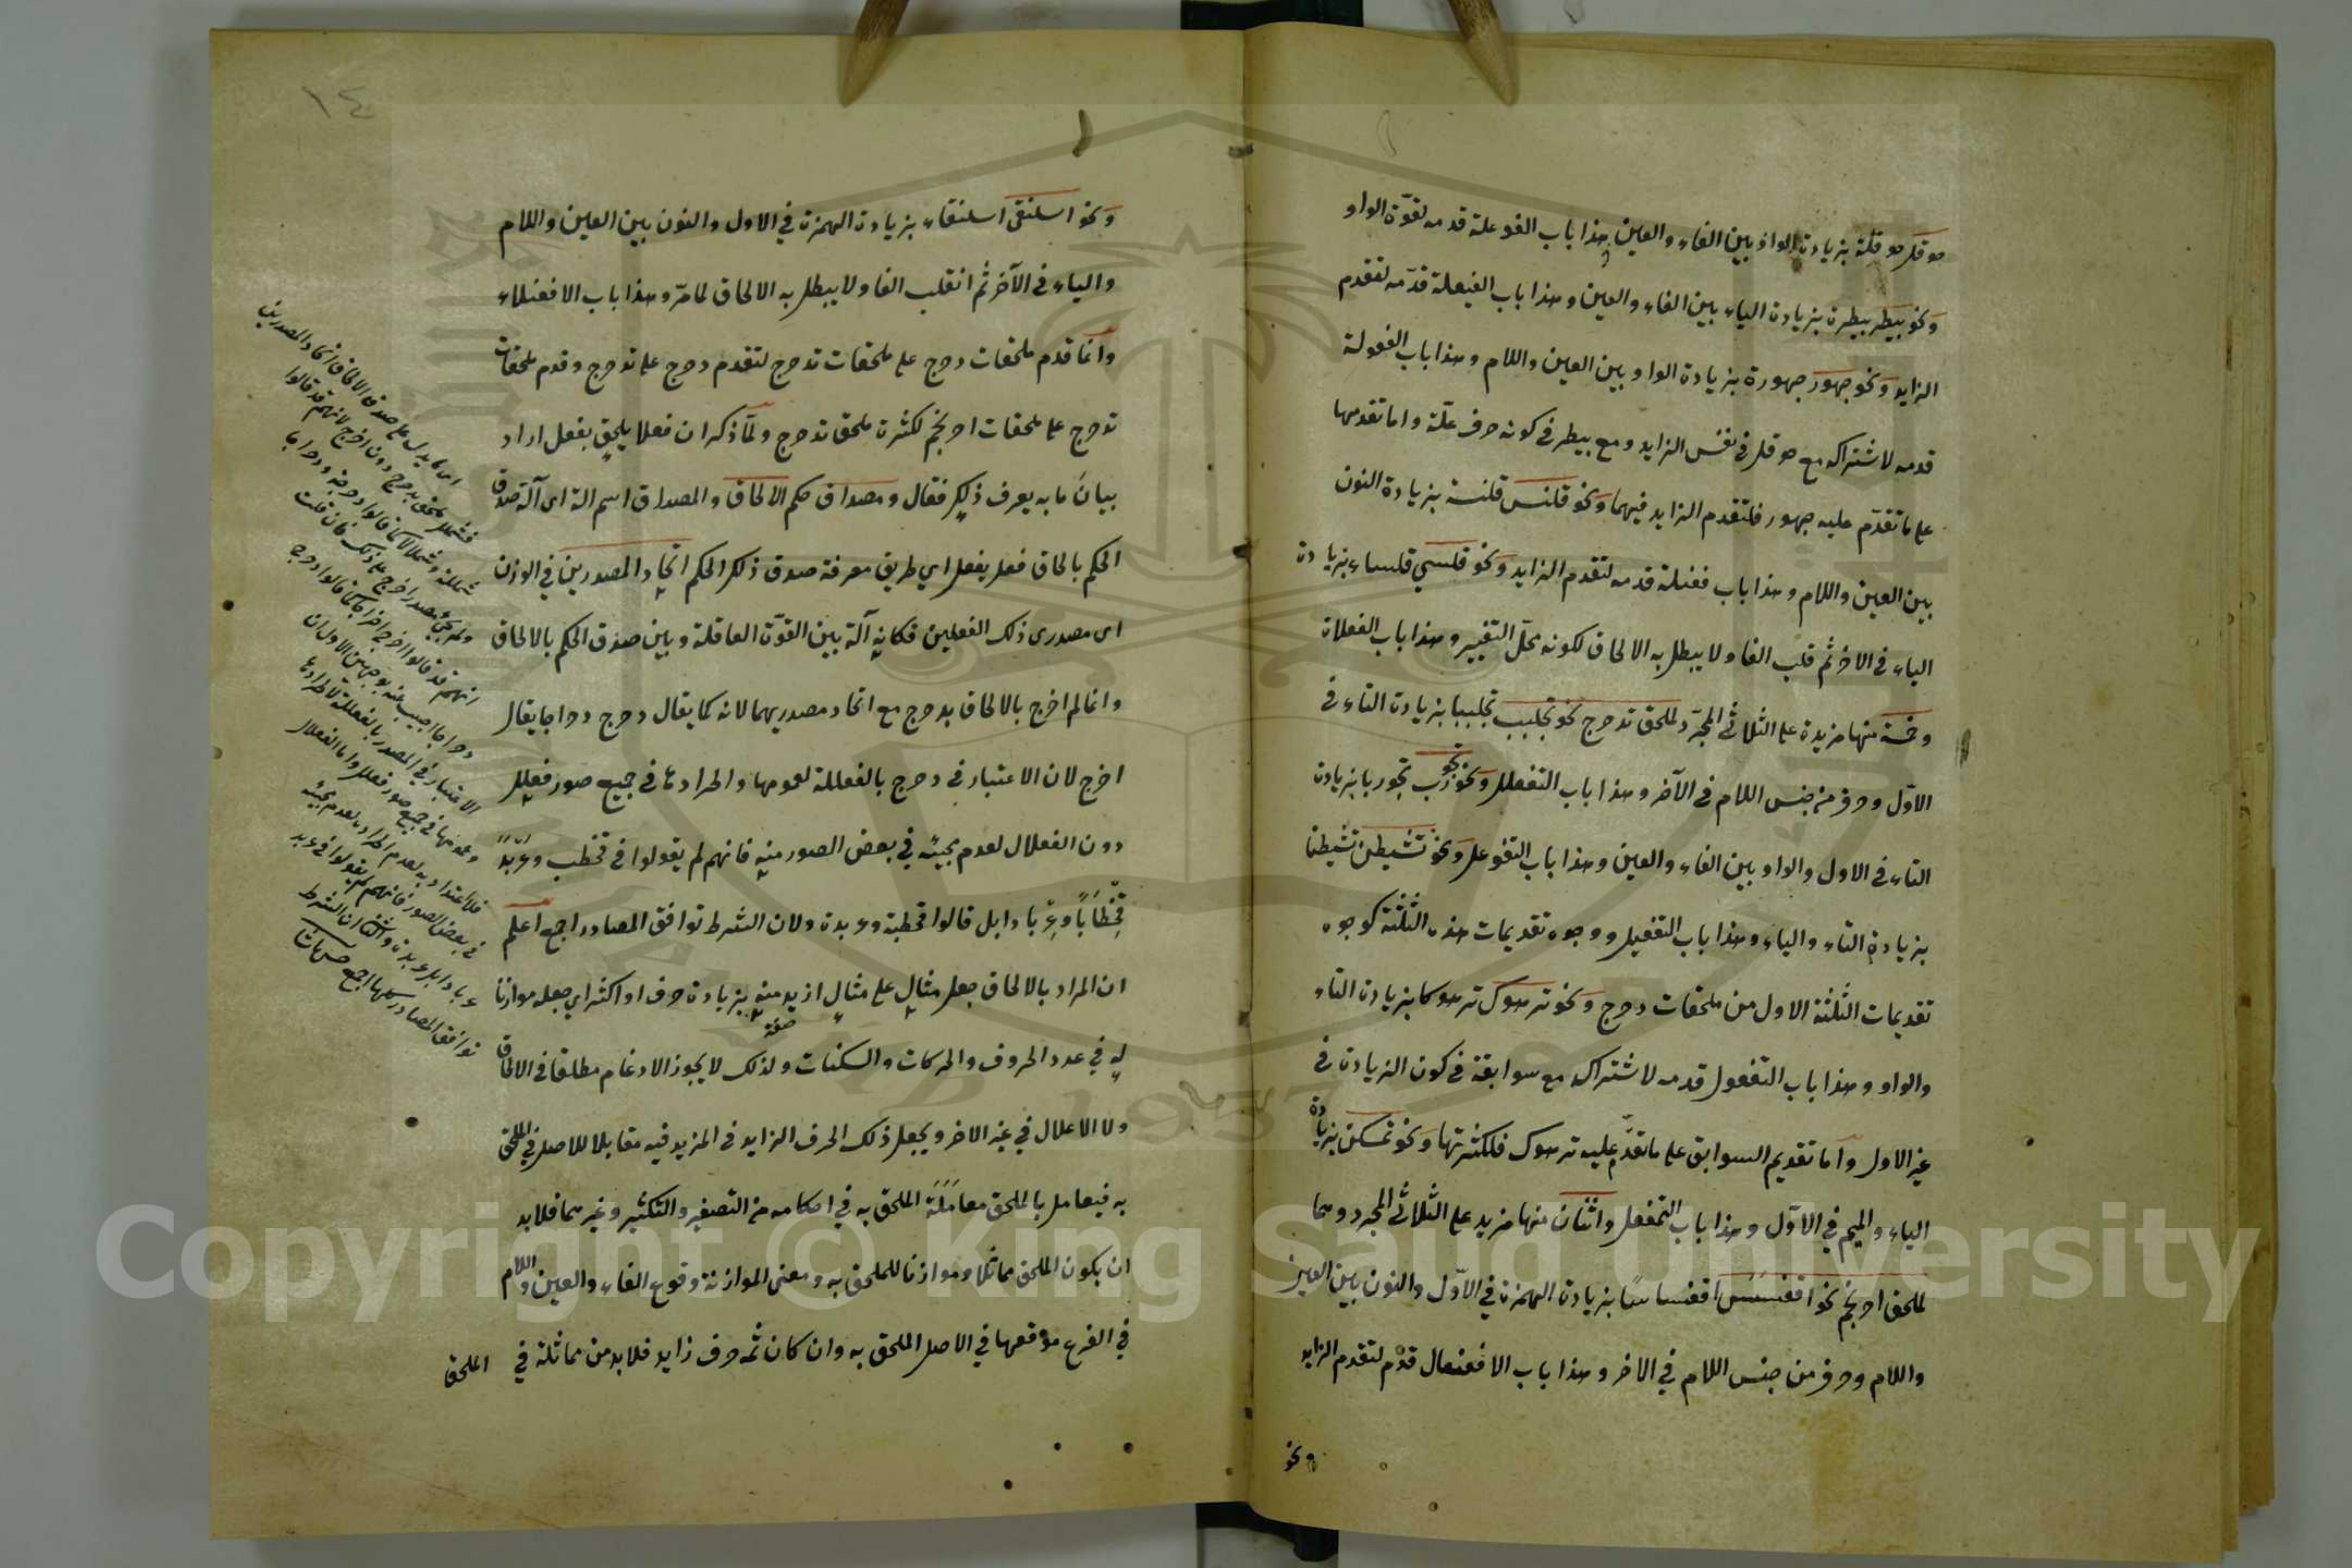 حوقل حوقلة بزيادة الواو بين الفاء والعين وهذا باب الفوعلة قدمه لقوّة الواو
ونحو بيطر بيطرة بزيادة الياء بين الفاء والعين وهذا باب الفيعلة قدّمه لتقدم
الزايد ونحو جهور جهورة بزيادة الواو بين العين واللام وهذا باب الفعولة
قدمه لاشتراكه مع حوقل في نفس الزايد ومع بيطر في كونه حرف علّة واما تقدمهما
على ما تقدّم عليه جهور فلتقدم الزايد فيهما ونحو قلنس قلنسة بزيادة النون
بين العين واللام وهذا باب فعنلة قدمه لتقدم الزايد ونحو قلسي قلساء بزيادة
الياء في الاخر ثم قلب الفا ولا يبطل به الالحاق لكونه محلّ التغيير وهذا باب الفعلاة
وخمسة منها مزيدة على الثلاثي المجرّد لملحق تدحرج نحو تجلبب تجلببا بزيادة التاء في
الاوّل وحرف من جنس اللام في الآخر وهذا باب التفعلل ونحو تجورب تجوربا بزيادة
التاء في الاول والواو بين الفاء والعين وهذا باب التفوعل ونحو تشيطن تشيطنا
بزيادة التاء والياء وهذا باب التفيعل ووجوه تقديمات هذه الثلثة كوجوه
تقديمات الثلثة الاول من ملحقات دحرج ونحو ترهوك ترهوكا بزيادة التاء
والواو وهذا باب التفعول قدمه لاشتراكه مع سوابقة في كون الزيادة في
غير الاول واما تقديم السوابق على ما تقدّم عليه ترهوك فلكثرتها ونحو تمسكن بزيادة
الياء والميم في الاوّل وهذا باب التمفعل واثنان منها مزيد على الثلاثي المجرد وهما
لملحق احرنجم نحو اقعنسس اقعنساسا بزيادة الهمزة في الاوّل والنون بين العين
واللام وحرف من جنس اللام في الاخر وهذا باب الافعنعال قدّم لتقدم الزايد
ونحو
١٤
ونحو اسلنقى اسلنقاء بزيادة الهمزة في الاول والنون بين العين واللام
والياء في الآخر ثم انقلب الفا ولا يبطل به الالحاق لما مرّ وهذا باب الافعنلاء
وانما قدم ملحقات دحرج على ملحقات تدحرج لتقدم دحرج على تدحرج وقدم ملحقات
تدحرج على ملحقات احرنجم لكثرة ملحق تدحرج ولمّا ذكر ان فعلا يلحق بفعل اراد
بيان ما به يعرف ذلك فقال ومصداق حكم الالحاق والمصداق اسم الة اي آلة صدق
الحكم بالحاق فعل بفعل اي طريق معرفة صدق ذلك الحكم اتحاد المصدرين في الوزن
اى مصدرى ذلك الفعلين فكانه آلة بين القوّة العاقلة وبين صدق الحكم بالالحاق
وانما لم اخرج بالالحاق بدحرج مع اتحاد مصدريهما لانه كما يقال دحرج دحراجا يقال
اخرج لان الاعتبار في دحرج بالفعللة لعمومها واطرادها في جميع صور فعلل
دون الفعلال لعدم مجيئه في بعض الصور منه فانهم لم يقولوا في قحطب وعربد
قحطابا وعربادا بل قالوا قحطبة وعربدة ولان الشرط توافق المصادر اجمع اعلم
ان المراد بالالحاق جعل مثال على مثال ازيد منه بزيادة حرف او اكثر اي جعله موازنا
صفة
له في عدد الحروف والحركات والسكنات ولذلك لا يجوز الادغام مطلقا في الالحاق
ولا الاعلال في غير الاخر ويجعل ذلك الحرف الزايد في المزيد فيه مقابلا للاصل في الملحق
به فيعامل بالملحق معاملة الملحق به في احكامه من التصغير والتكثير وغيرهما فلا بد
ان يكون الملحق مماثلا وموازنا للملحق به ومعنى الموازنة وقوع الفاء والعين واللام
في الفرع موقعها في الاصل الملحق به وان كان ثمه حرف زايد فلا بد من مماثلة في
الملحق
اى ما يدل على صدق الالحاق اتحاد المصدرين
فشملل ملحق بدحرج دون اخرج لانهم قد قالوا
شمللة وشملالا كما قالوا دحرجة ودحراجا
ولم يجئ مصدر اخرج على ذلك فان قلت
انهم قد قالوا اخرج اخراجا كما قالوا دحرج
دحراجا اجيب عنه بوجهين الاول ان
الاعتبار في المصدر بالفعللة لاطرادها
وعمومها في جميع صور فعلل واما الفعلال
فلا اعتداد به لعدم اطراده لعدم مجيئه
في بعض الصور فانهم لم يقولوا في عربد
عربادا بل عربدة والثاني ان الشرط
توافق المصادر كلها اجمع
Copyright © King Saud University
1957